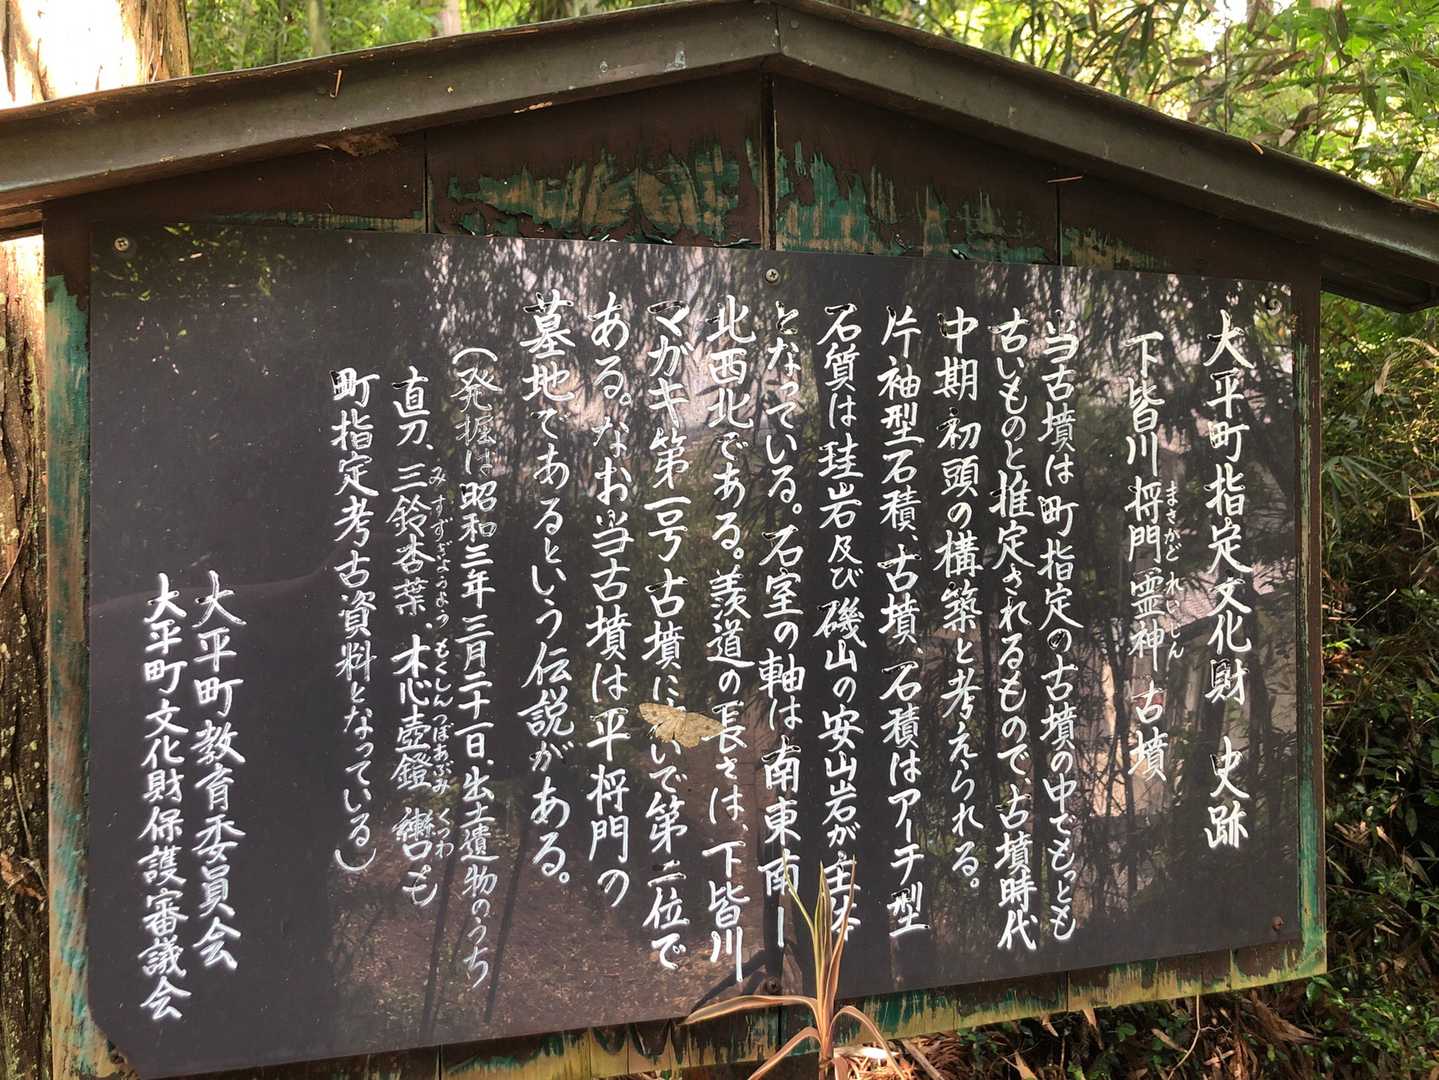 大平町指定文化財　史跡
下皆川将門霊神古墳
まさかどれいじん
当古墳は町指定の古墳の中でもっとも
古いものと推定されるもので、古墳時代
中期初頭の構築と考えられる。
片袖型石積、古墳、石積はアーチ型
石質は珪岩及び磯山の安山岩が主体
となっている。石室の軸は南東南ー
北西北である。羨道の長さは、下皆川
マガキ第一号古墳に いで第二位で
ある。なお当古墳は平将門の
墓地であるという伝説がある。
（発掘は昭和三年三月二十一日、出土遺物のうち
直刀、三鈴杏葉、木心壺鐙 轡も
みすずぎょうよう もくしんつぼあぶみ くつわ
町指定考古資料となっている）
大平町教育委員会
大平町文化財保護審議会